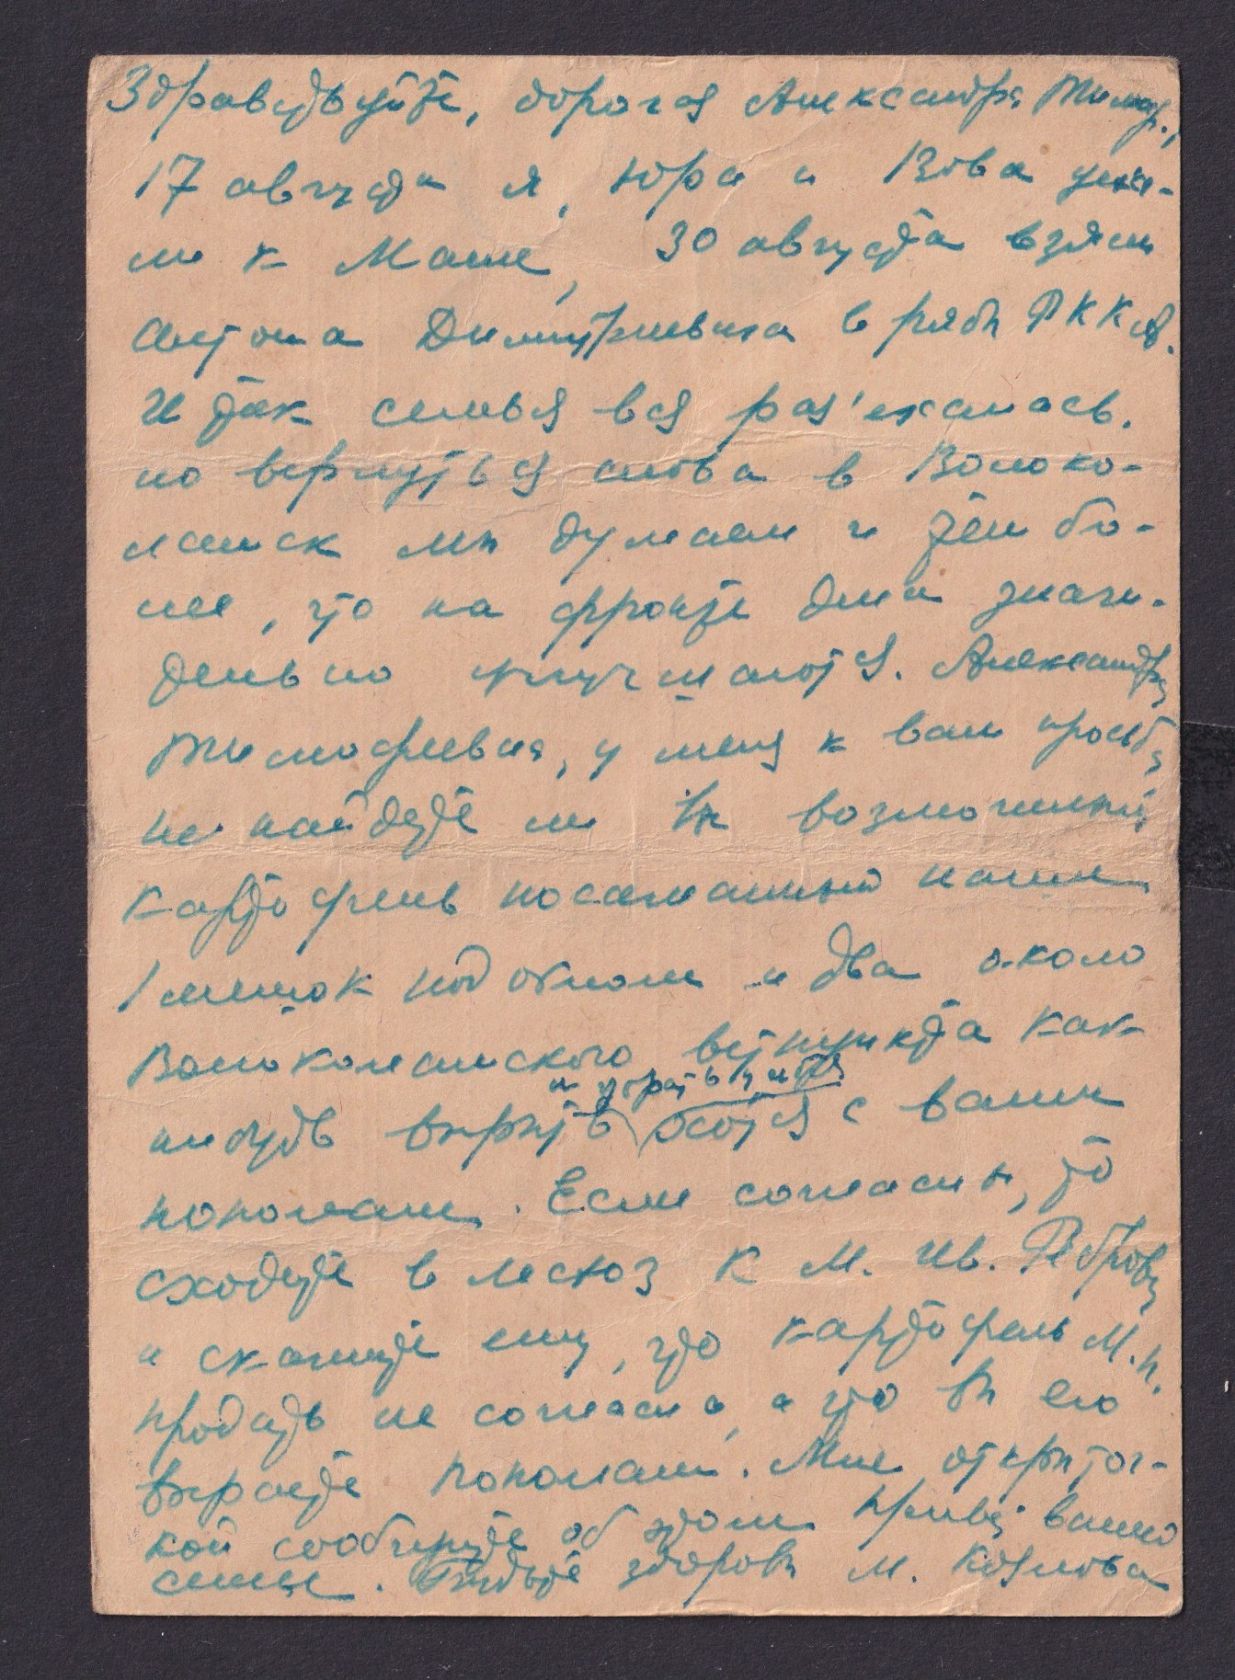 Здравствуйте, дорогая Александра Тимоф.,
17 августа я, Юра и Вова уеха-
ли к Маше, 30 августа взяли
Антона Димитриевича в ряды РККА.
И так семья вся раз'ехалась.
но вернуться снова в Волоко-
ламск мы думаем и тем бо-
лее, что на фронте дела значи-
тельно улучшаются. Александра
Тимофеевна, у меня к вам просьба
не найдете ли Вы возможным
картофель посаженный нами
1 мешок под окном и два около
Волоколамского ветпункта как-
и убрать
нибудь вырыть хотя с вами
пополам. Если согласны, то
сходите в лесхоз к М. Ив. Петрову
и скажите ему, что картофель М. П.
продать не согласна, а что Вы его
выроете пополам. Мне открыточ-
кой сообщите об этом привет вашей
семье. Будьте здоровы М. Козлова